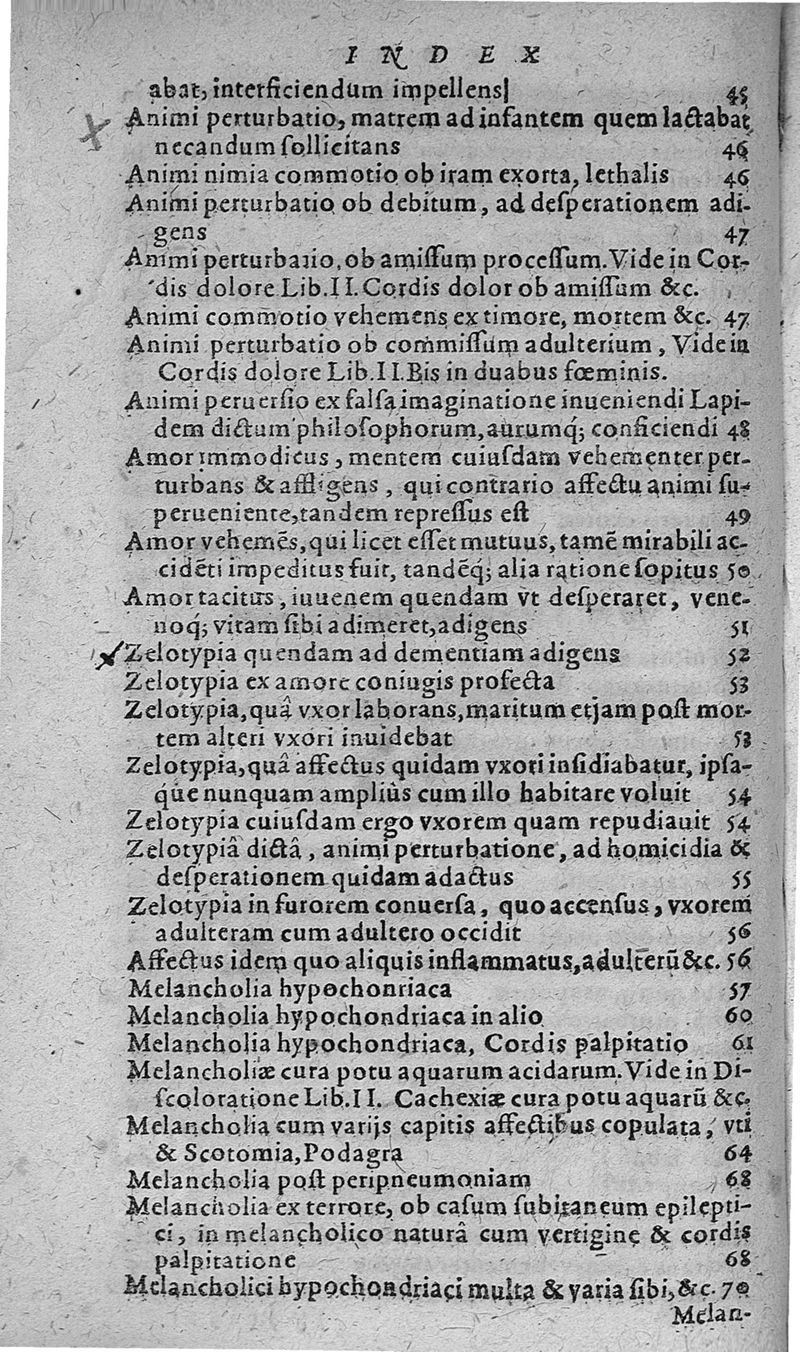 INDEX
abat, interficiendum impellens 45
Animi perturbatio, matrem ad infantem quem lactabat
necandum ſollicitans 46
Animi nimia commotio ob iram exorta, lethalis 46
Animi perturbatio ob debitum, ad deſperationem adi-
gens 47
Animi perturbatio, ob amiſſum proceſſum. Vide in Cor-
dis dolore Lib. II. Cordis dolor ob amiſſum &c.
Animi commotio vehemens ex timore, mortem &c. 47
Animi perturbatio ob commiſſum adulterium, Vide in
Cordis dolore Lib. II. Bis in duabus fœminis.
Animi peruerſio ex falſa imaginatione inueniendi Lapi-
dem dictum philoſophorum, aurumq́; conficiendi 48
Amor immodicus, mentem cuiuſdam vehementer per-
turbans & affligens, qui contrario affectu animi ſu-
perueniente, tandem repreſſus eſt 49
Amor vehemẽs, qui licet eſſet mutuus, tamẽ mirabili ac-
cidẽti impeditus fuit, tandẽq́; alia ratione ſopitus 50
Amor tacitus, iuuenem quendam vt deſperaret, vene-
noq́; vitam ſibi adimeret, adigens 51
Zelotypia quendam ad dementiam adigens 52
Zelotypia ex amore coniugis profecta 53
Zelotypia, quâ vxor laborans, maritum etjam poſt mor-
tem alteri vxori inuidebat 53
Zelotypia, quâ affectus quidam vxori inſidiabatur, ipſa-
q́ue nunquam ampliùs cum illo habitare voluit 54
Zelotypia cuiuſdam ergo vxorem quam repudiauit 54
Zelotypiâ dictâ, animi perturbatione, ad homicidia &
deſperationem quidam adactus 55
Zelotypia in furorem conuerſa, quo accenſus, vxorem
adulteram cum adultero occidit 56
Affectus idem quo aliquis inflammatus, adulterũ &c. 56
Melancholia hypochonriaca 57
Melancholia hypochondriaca in alio 60
Melancholia hypochondriaca, Cordis palpitatio 61
Melancholiæ cura potu aquarum acidarum. Vide in Di-
ſcoloratione Lib. II. Cachexiæ cura potu aquarũ &c.
Melancholia cum varijs capitis affectibus copulata, vti
& Scotomia, Podagra 64
Melancholia poſt peripneumoniam 68
Melancholia ex terrore, ob caſum ſubitaneum epilepti-
ci, in melancholico naturâ cum vertigine & cordis
palpitatione 68
Melancholici hypochondriaci multa & varia ſibi, &c. 70
Melan-